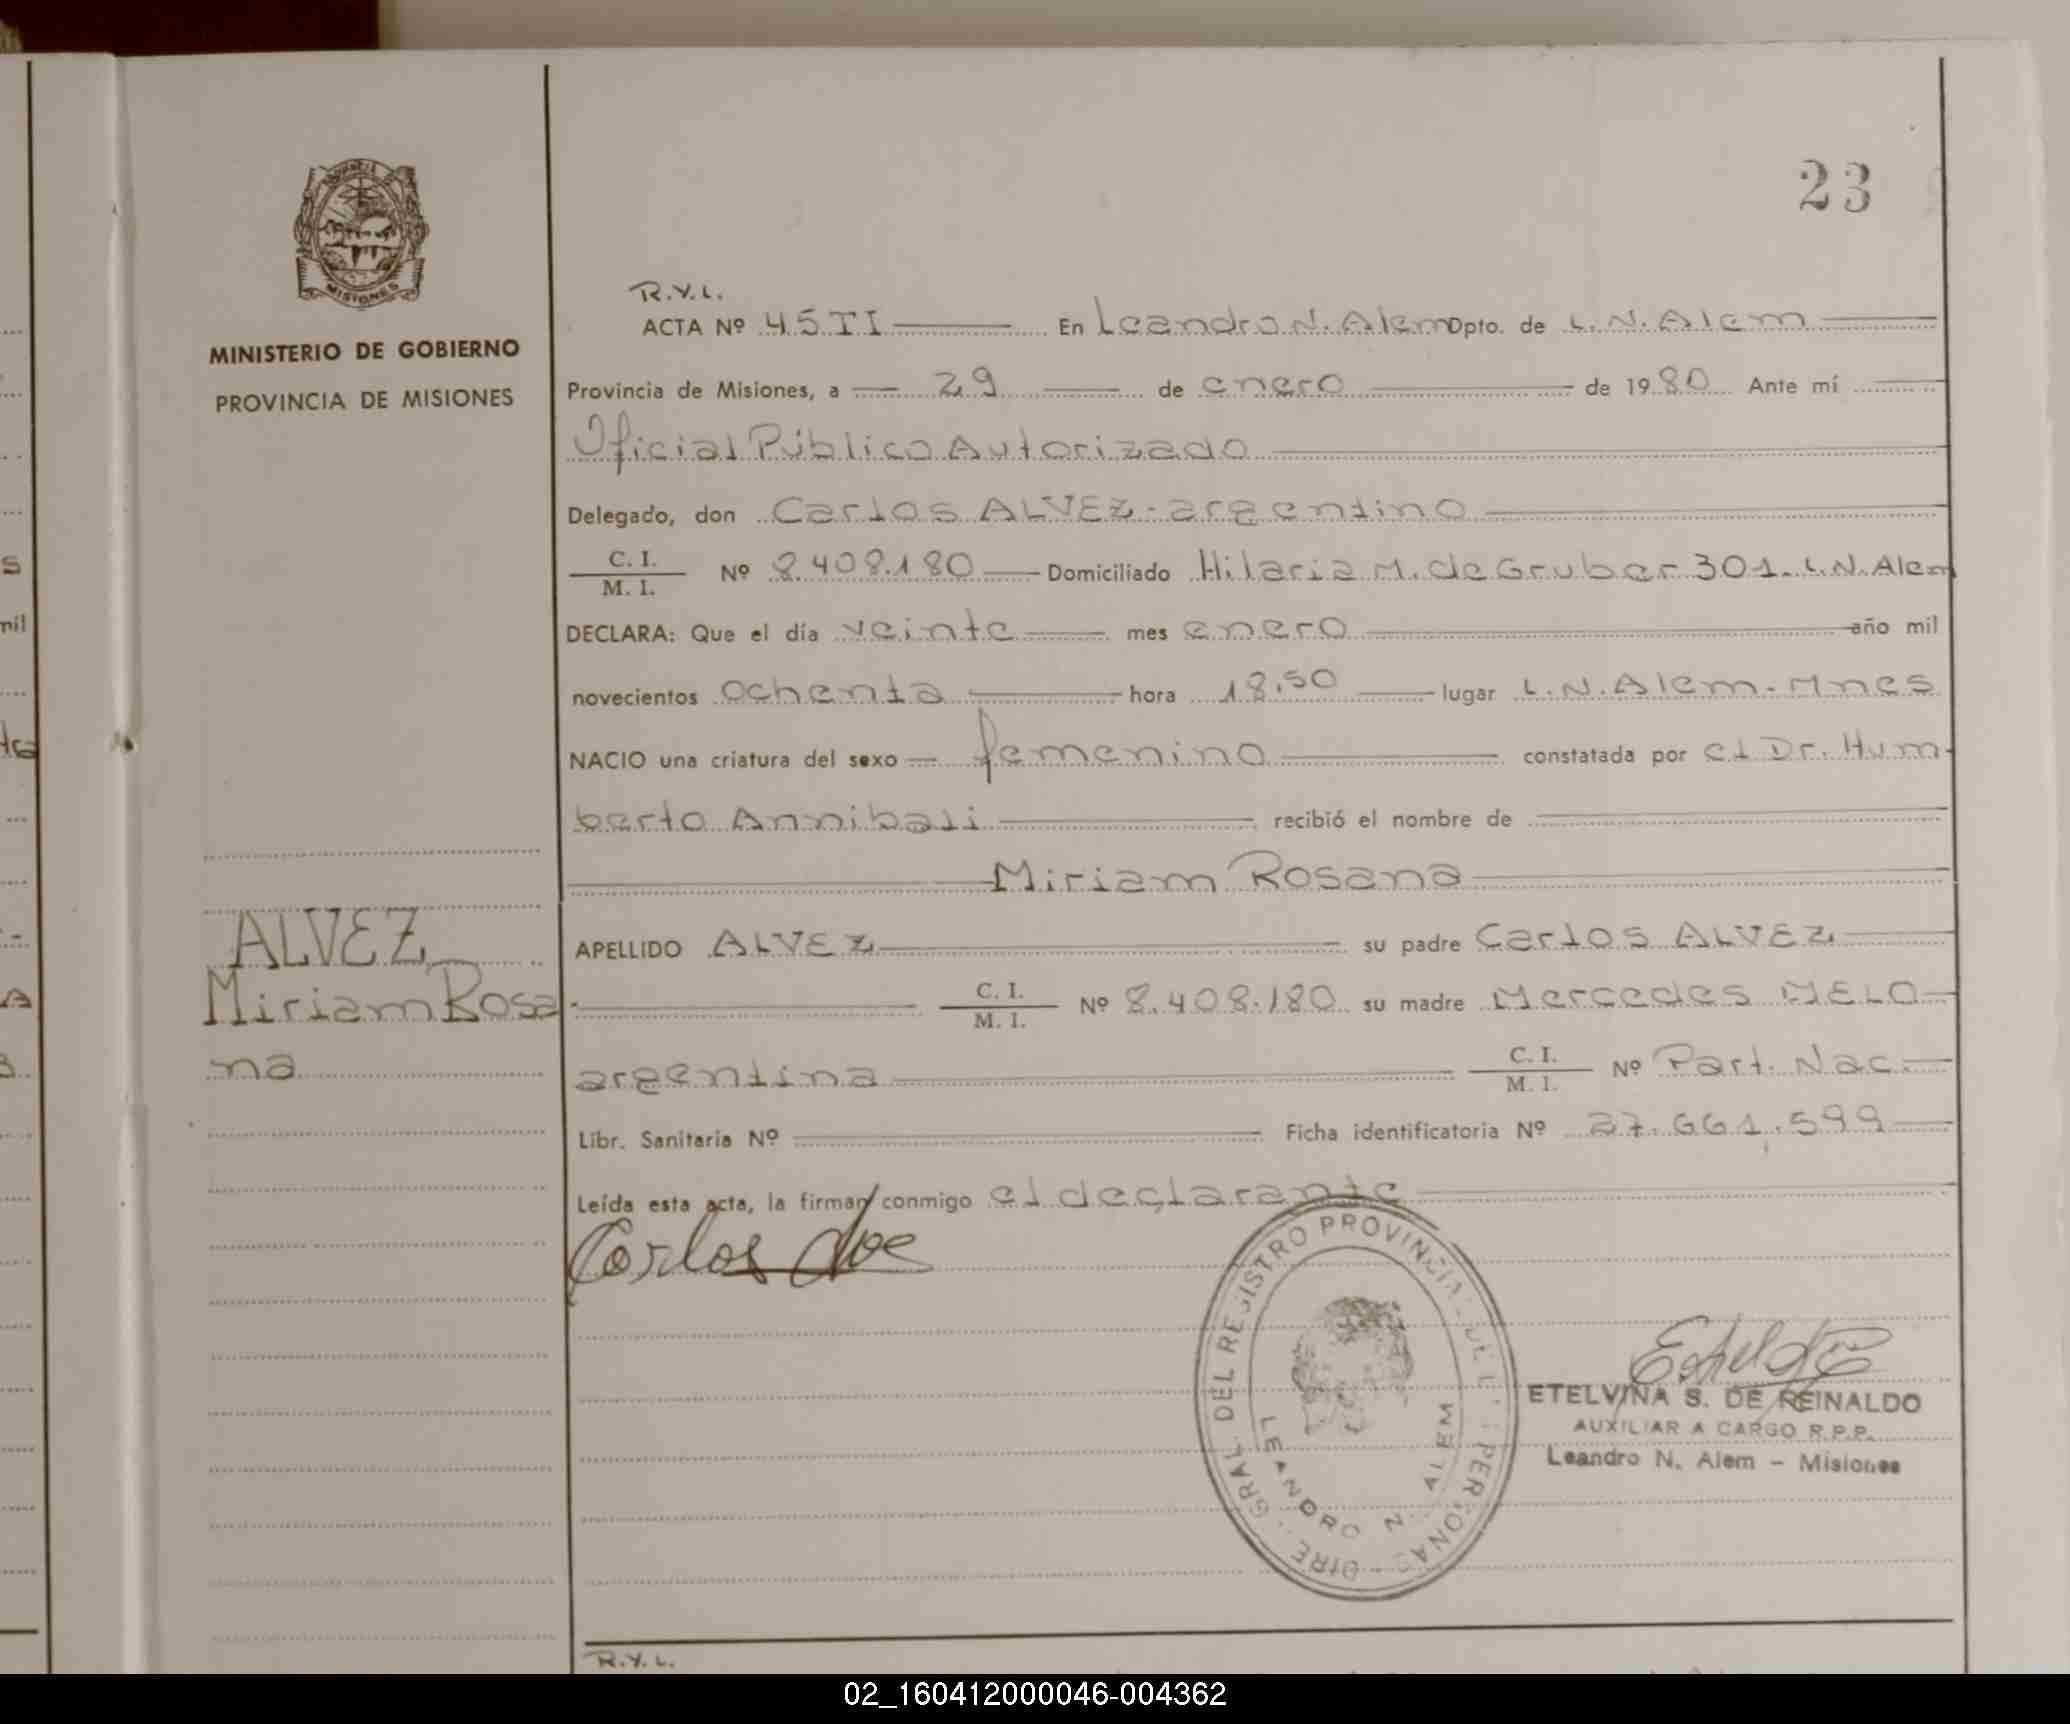 23
MISIONES
MINISTERIO DE GOBIERNO
PROVINCIA DE MISIONES
ALVEZ
Miriam Rosa
na
R.V.L.
ACTA Nº 45 TI En Leandro N. Alem Dpto. de L.N.Alem
Provincia de Misiones, a 29 de enero de 1980 Ante mí
Oficial Público Autorizado
Delegado, don Carlos ALVEZ - argentino
C. I.
M. I. Nº 8.408.180 Domiciliado Hilaria M. de Gruber 301. L.N.Alem
DECLARA: Que el día veinte mes enero año mil
novecientos ochenta hora 18,50 lugar L.N.Alem - Mnes
NACIO una criatura del sexo femenino constatada por el Dr. Hum-
berto Annibali recibió el nombre de
Miriam Rosana
APELLIDO ALVEZ su padre Carlos ALVEZ
C. I.
M. I. Nº 8.408.180 su madre Mercedes MELO
argentina C. I.
M. I. Nº Part. Nac.
Libr. Sanitaria Nº Ficha identificatoria Nº 27.661.599
Leída esta acta, la firman conmigo el declarante
Carlos
DIRE. GRAL. DEL REGISTRO PROVINCIAL DE L PERSONAS
LEANDRO N. ALEM
ETELVINA S. DE REINALDO
AUXILIAR A CARGO R.P.P.
Leandro N. Alem - Misiones
R.V.L.
02_160412000046-004362